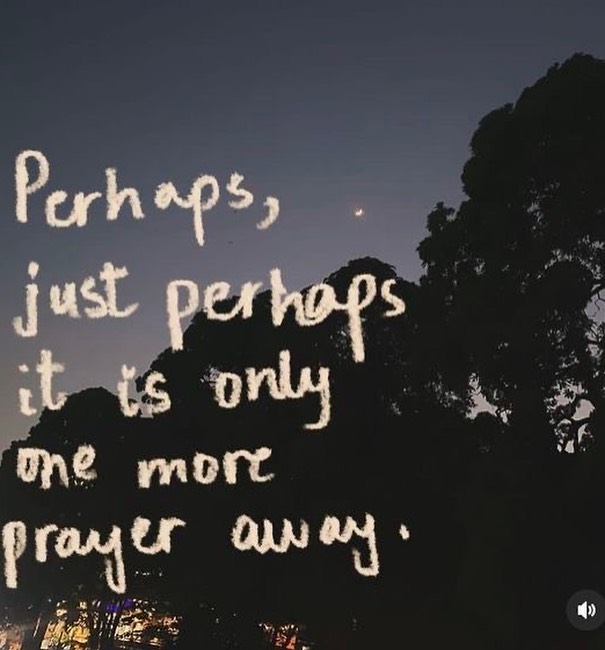 Perhaps,
just perhaps
it is only
one more
prayer away.